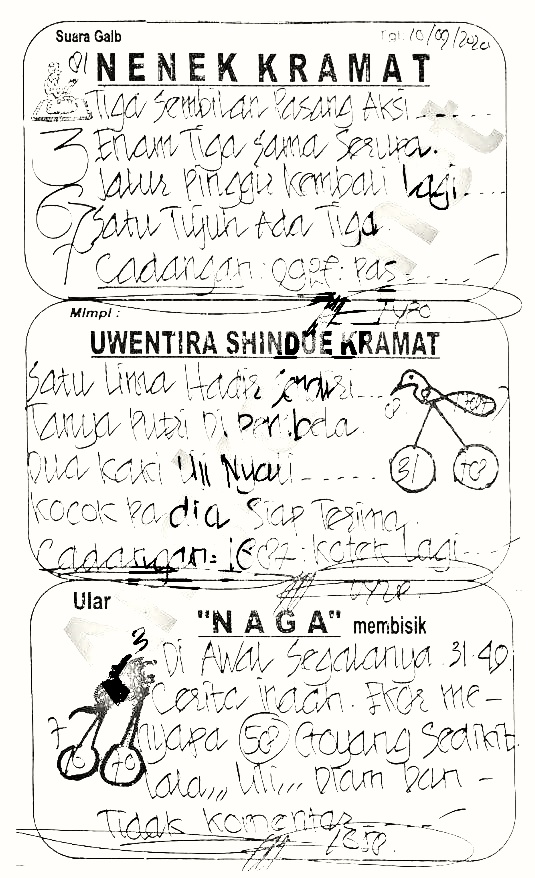 Suara Galb
Tgl: 10/09/2020
01 NENEK KRAMAT
Tiga Sembilan Pasang Aksi.......
3 Enam Tiga Sama Serupa.
Jalur Pinggir Kembali Lagi....
6 Satu Tujuh Ada Tiga
7 Cadangan: : Pas......
Mimpi :
UWENTIRA SHINDUE KRAMAT
Satu Lima Hadir Sendiri....
Tanya Putri Di
Dua Kaki Nyali......
31
Kocok Siap Terima
Cadangan: Kotek Lagi....
Ular
"NAGA" membisik
3
Di Awal Segalanya 31.40
Cerita Indah. Ekor me-
7 nyapa 58 Goyang Sedikit
lala,,, lili,,, Diam Dan -
Tidak Komentar